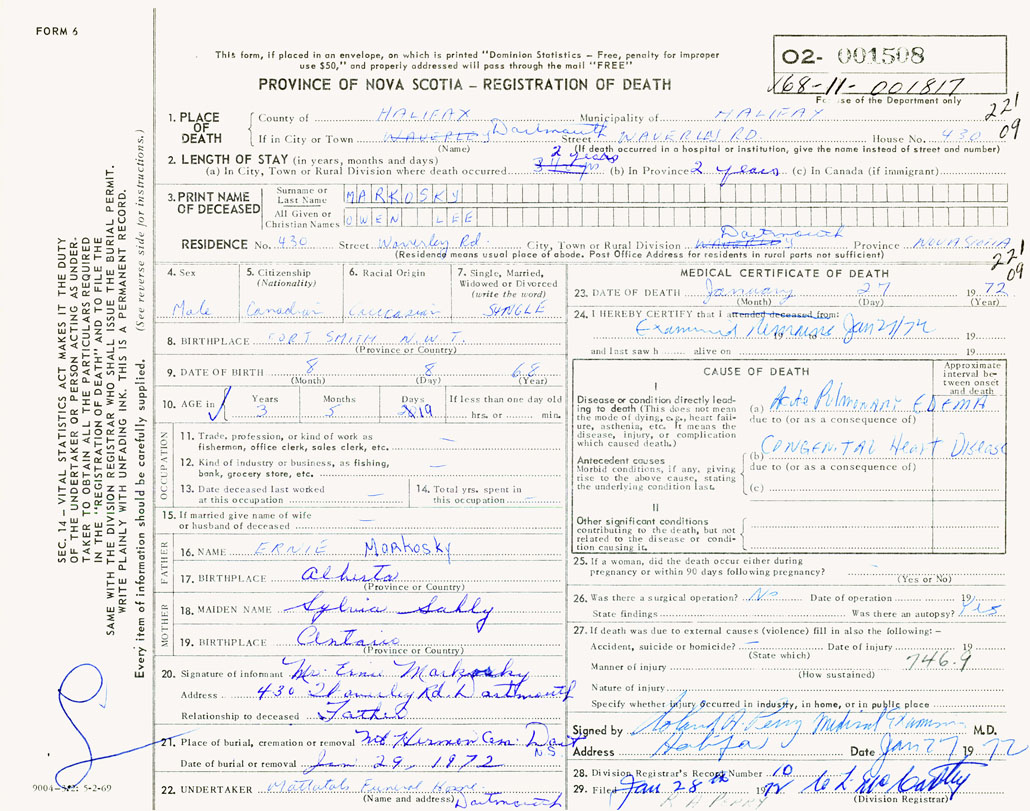 FORM 6
This form, if placed in an envelope, on which is printed "Dominion Statistics – Free, penalty for improper
use $50," and properly addressed will pass through the mail "FREE"
PROVINCE OF NOVA SCOTIA – REGISTRATION OF DEATH
O2- 001508
168-11- 001817
For use of the Department only
221
09
1. PLACE OF DEATH
County of HALIFAX Municipality of HALIFAX
If in City or Town WAVERLEY Dartmouth Street WAVERLEY RD. House No. 430
(Name) (If death occurred in a hospital or institution, give the name instead of street and number)
2. LENGTH OF STAY (in years, months and days)
(a) In City, Town or Rural Division where death occurred 2 years (b) In Province 2 years (c) In Canada (if immigrant)
3. PRINT NAME OF DECEASED
Surname or Last Name MARKOSKY
All Given or Christian Names OWEN LEE
RESIDENCE No. 430 Street Waverley Rd. City, Town or Rural Division WAVERLEY Dartmouth Province NOVA SCOTIA
(Residence means usual place of abode. Post Office Address for residents in rural parts not sufficient)
221
09
4. Sex Male
5. Citizenship (Nationality) Canadian
6. Racial Origin Caucasian
7. Single, Married, Widowed or Divorced (write the word) SINGLE
8. BIRTHPLACE FORT SMITH N.W.T.
(Province or Country)
9. DATE OF BIRTH 8 8 68
(Month) (Day) (Year)
10. AGE in Years 3 Months 5 Days 19 If less than one day old hrs. or min.
OCCUPATION
11. Trade, profession, or kind of work as fisherman, office clerk, sales clerk, etc. —
12. Kind of industry or business, as fishing, bank, grocery store, etc. —
13. Date deceased last worked at this occupation —
14. Total yrs. spent in this occupation —
15. If married give name of wife or husband of deceased —
FATHER
16. NAME ERNIE Markosky
17. BIRTHPLACE Alberta
(Province or Country)
MOTHER
18. MAIDEN NAME Sylvia Sahly
19. BIRTHPLACE Ontario
(Province or Country)
20. Signature of informant Mr. Ernie Markosky
Address 430 Waverley Rd. Dartmouth
Relationship to deceased Father
21. Place of burial, cremation or removal Mt Hermon Cem. Dart NS
Date of burial or removal Jan 29, 1972
22. UNDERTAKER Mattatals Funeral Home
(Name and address) Dartmouth
MEDICAL CERTIFICATE OF DEATH
23. DATE OF DEATH January 27 1972
(Month) (Day) (Year)
24. I HEREBY CERTIFY that I attended deceased from:
Examined Remains Jan 27/72
19 to 19
and last saw h alive on 19
CAUSE OF DEATH
Approximate interval between onset and death
I
Disease or condition directly leading to death (This does not mean the mode of dying, e.g., heart failure, asthenia, etc. It means the disease, injury, or complication which caused death.)
(a) Acute Pulmonary EDEMA
due to (or as a consequence of)
Antecedent causes
Morbid conditions, if any, giving rise to the above cause, stating the underlying condition last.
(b) CONGENITAL Heart Disease
due to (or as a consequence of)
(c)
II
Other significant conditions contributing to the death, but not related to the disease or condition causing it.
25. If a woman, did the death occur either during pregnancy or within 90 days following pregnancy? -
(Yes or No)
26. Was there a surgical operation? No Date of operation 19
State findings Was there an autopsy? Yes
27. If death was due to external causes (violence) fill in also the following: –
Accident, suicide or homicide? — Date of injury 19
(State which)
746.9
Manner of injury
(How sustained)
Nature of injury
Specify whether injury occurred in industry, in home, or in public place
Signed by Roland A. Perry Medical Examiner M.D.
Address Halifax Date Jan 27 1972
28. Division Registrar's Record Number 10
29. Filed Jan 28th 1972
(Division Registrar)
SEC. 14 – VITAL STATISTICS ACT MAKES IT THE DUTY
OF THE UNDERTAKER OR PERSON ACTING AS UNDERTAKER
TO OBTAIN ALL THE PARTICULARS REQUIRED
IN THE "REGISTRATION OF DEATH" AND TO FILE THE
SAME WITH THE DIVISION REGISTRAR WHO SHALL ISSUE THE BURIAL PERMIT.
WRITE PLAINLY WITH UNFADING INK. THIS IS A PERMANENT RECORD.
Every item of information should be carefully supplied. (See reverse side for instructions.)